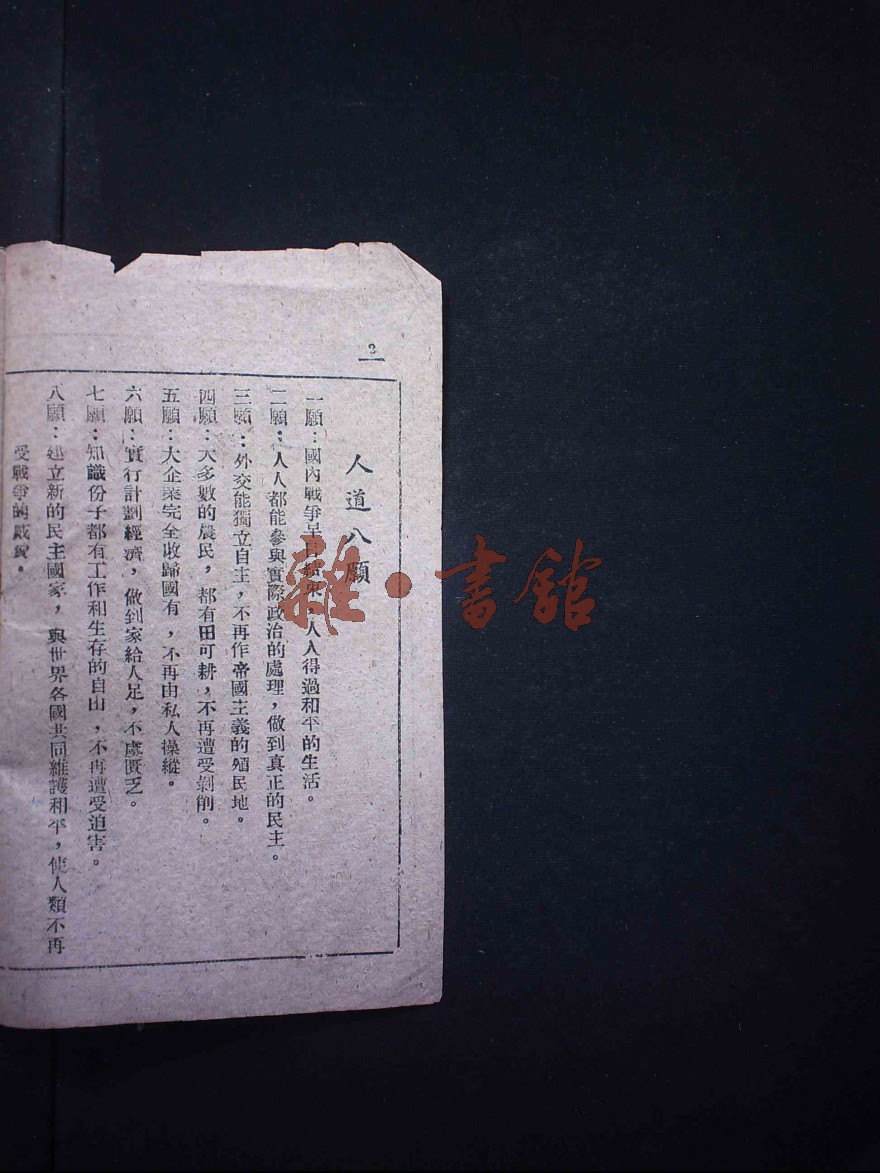 2
人道八願
一願：國內戰爭早日結束，人人得過和平的生活。
二願：人人都能參與實際政治的處理，做到真正的民主。
三願：外交能獨立自主，不再作帝國主義的殖民地。
四願：大多數的農民，都有田可耕，不再遭受剝削。
五願：大企業完全收歸國有，不再由私人操縱。
六願：實行計劃經濟，做到家給人足，不虞匱乏。
七願：知識份子都有工作和生存的自由，不再遭受迫害。
八願：建立新的民主國家，與世界各國共同維護和平，使人類不再
受戰爭的威脅。
雜·書館